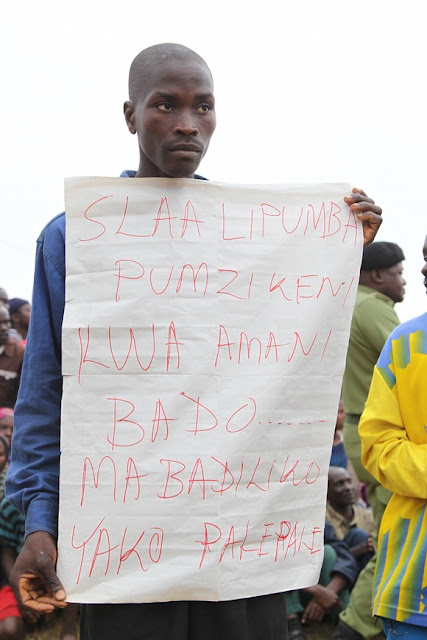 SLAA LIPUMBA
PUMZIKENI
KWA AMANI
BADO.......
MABADILIKO
YAKO PALEPALE